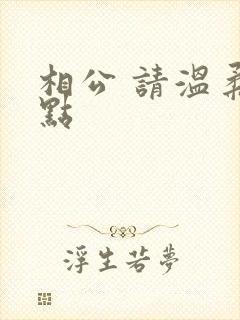 相公 請溫柔
點
浮生若夢